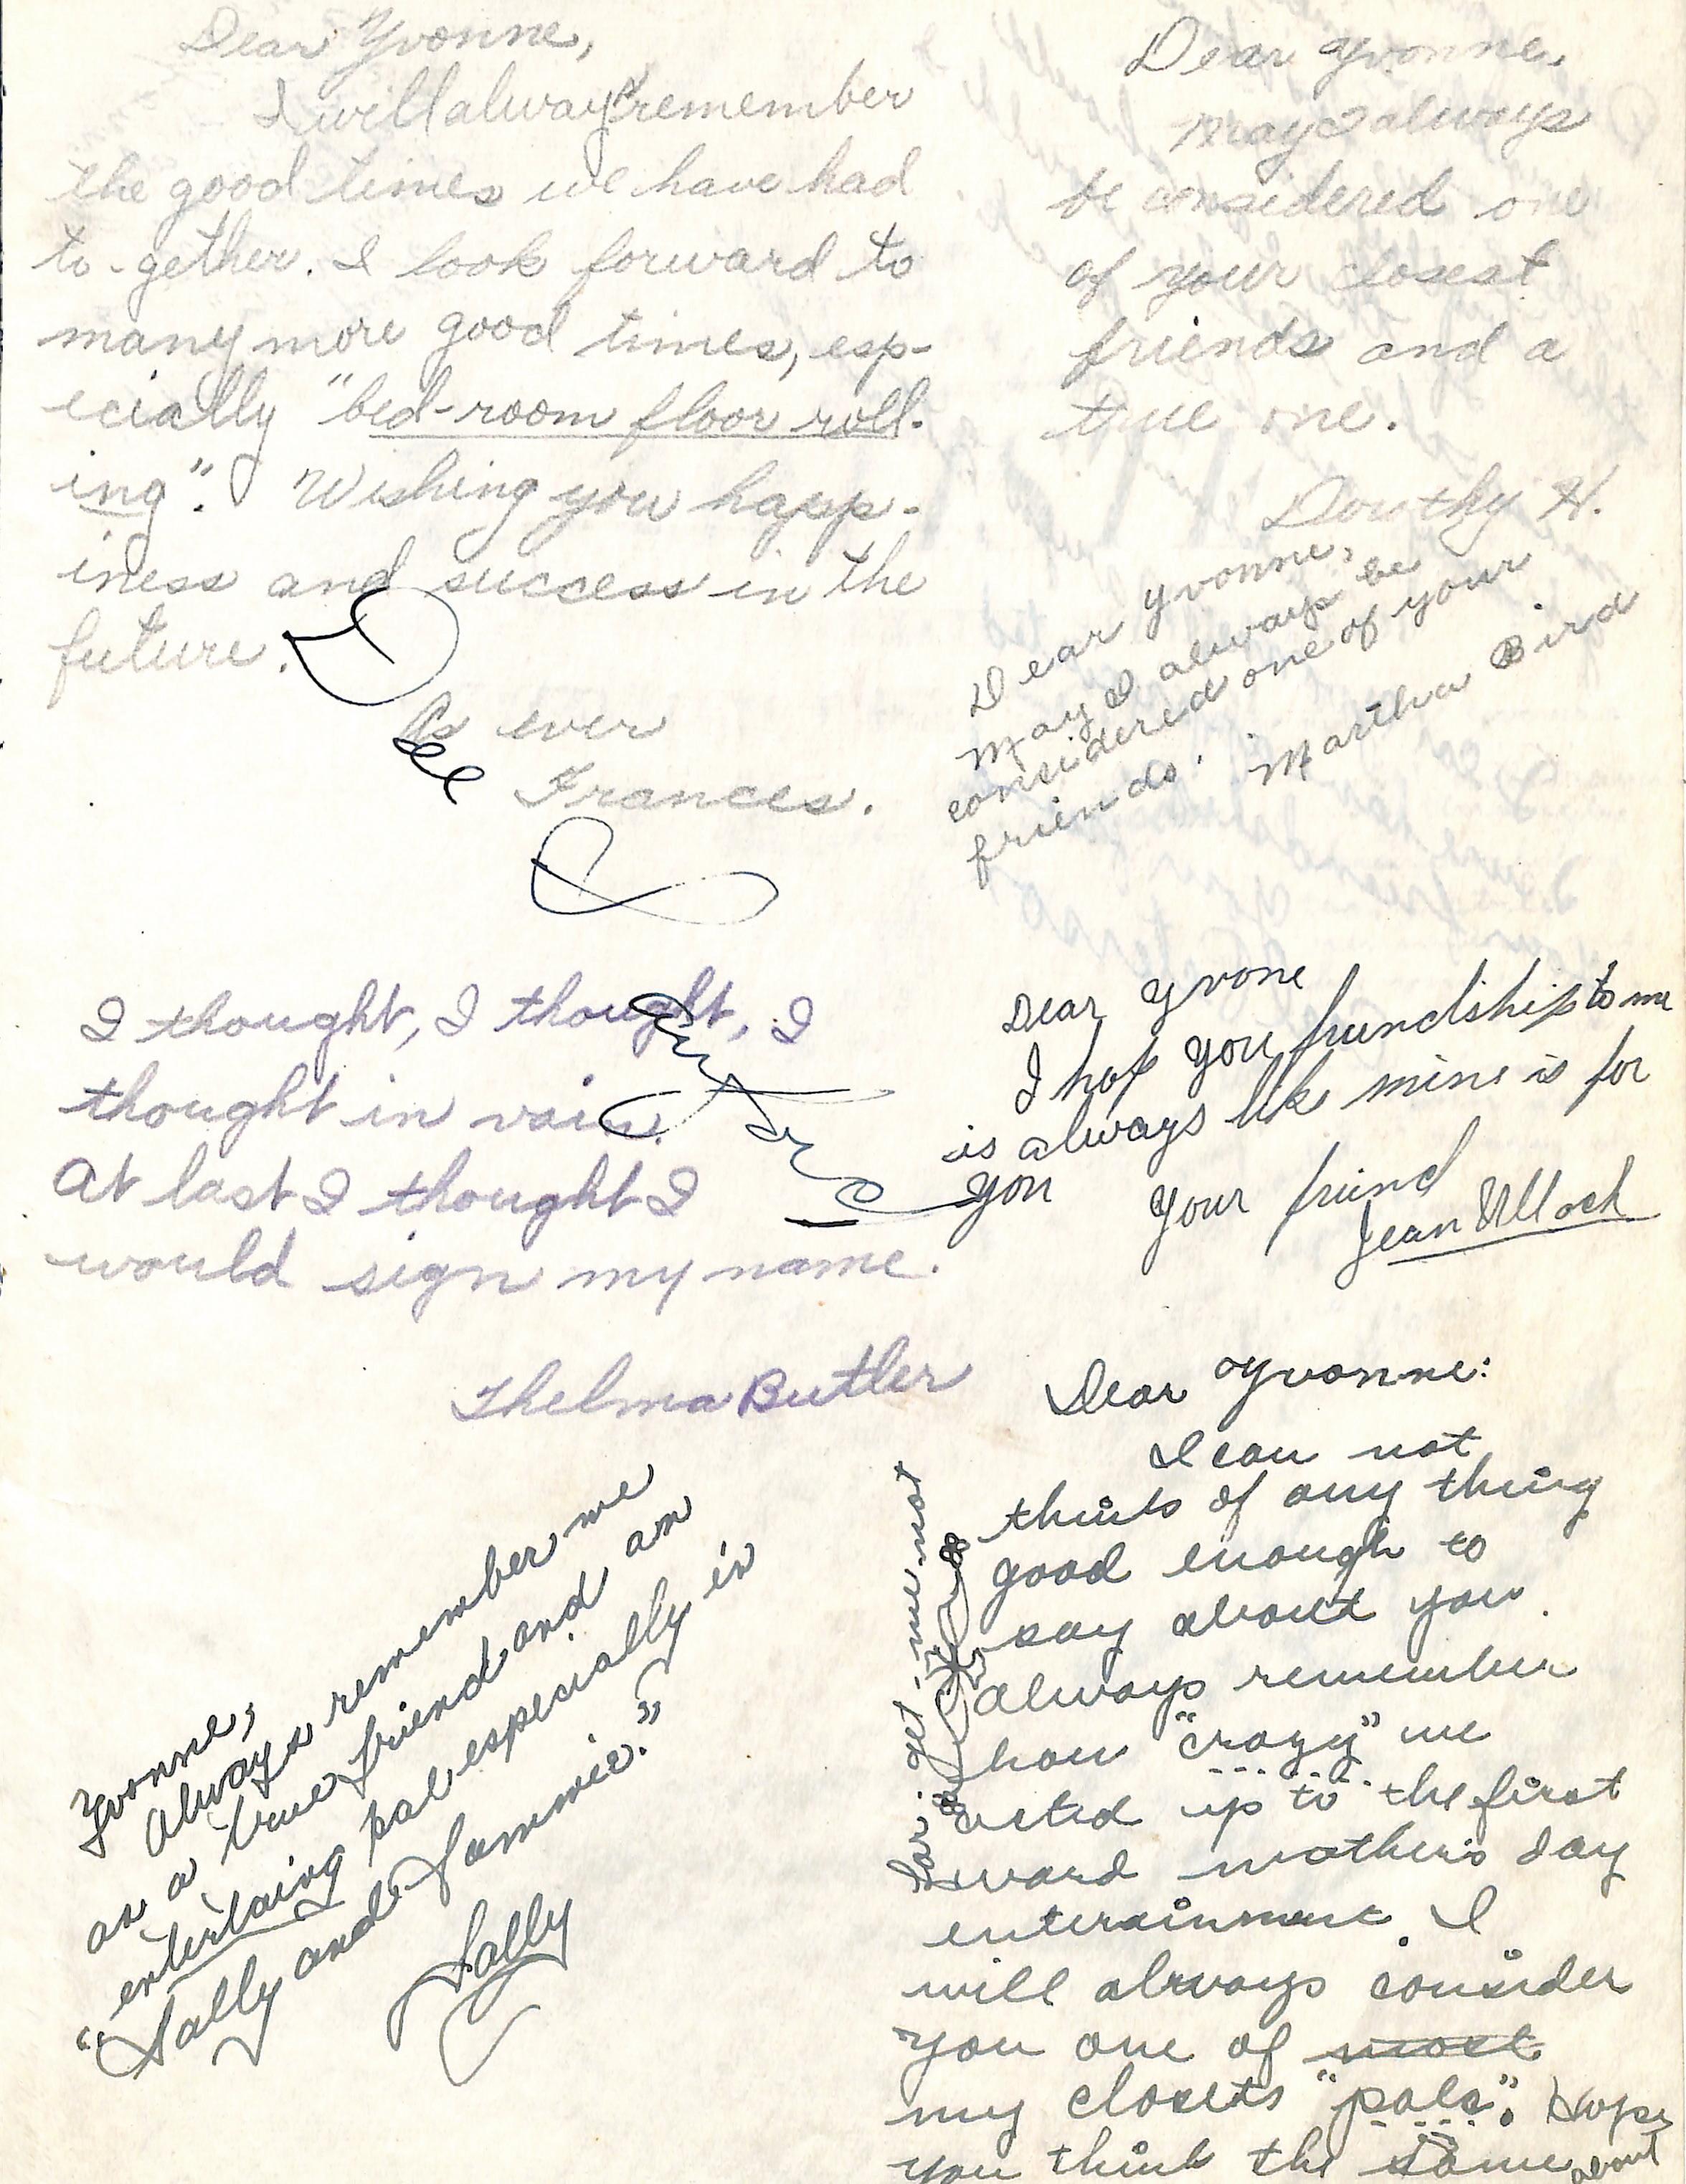 Dear Yvonne,
I will always remember
the good times we have had
to-gether. I look forward to
many more good times, esp-
ecially "bed-room floor roll-
ing". Wishing you happ-
iness and success in the
future.
As ever
Frances.
Dear Yvonne,
May I always
be considered one
of your closest
friends and a
true one.
Dorothy H.
Dear Yvonne,
May I always be
considered one of your
friends.
Martha Bird
I thought, I thought, I
thought in vain.
At last I thought I
would sign my name.
Thelma Butler
Dear Yvone
I hop you friendship to me
is always like mine is for
you
Your friend
Jean Ulloch
Yvonne,
Always remember me
as a true friend and an
entertaing pal especially in
"Sally and Sammie."
Sally
Dear Yvonne:
I can not
think of any thing
good enough to
say about you.
Always remember
how "crazy" we
acted up to the first
ward mother's day
enterainment. I
will always consider
you one of most
my closets "pals". Hope
you think the same about
for-get-me-not